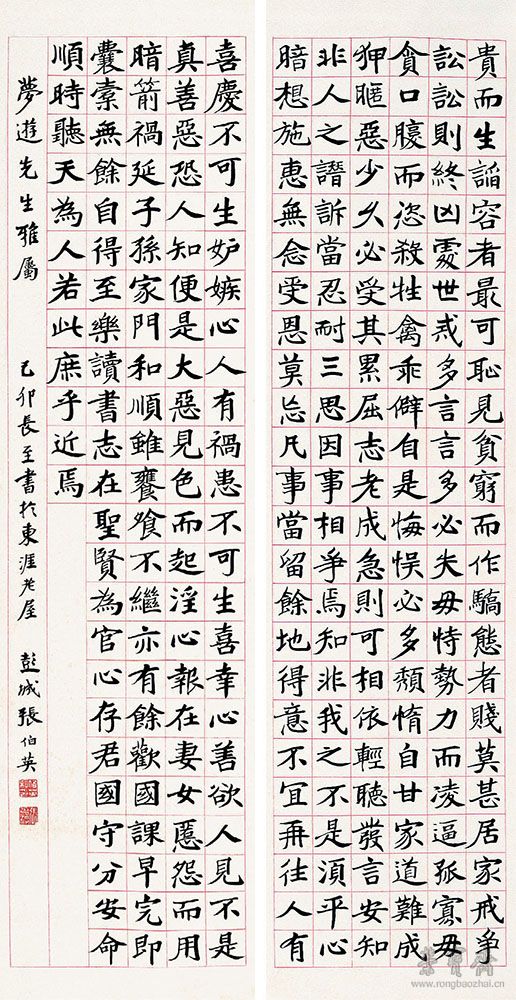 貴而生諂容者最可恥見貧窮而作驕態者賤莫甚居家戒爭
訟訟則終凶處世戒多言言多必失毋恃勢力而凌逼孤寡毋
貪口腹而恣殺牲禽乖僻自是悔悞必多頹惰自甘家道難成
狎暱惡少久必受其累屈志老成急則可相依輕聽發言安知
非人之譖訴當忍耐三思因事相爭焉知非我之不是須平心
暗想施惠無念受恩莫忘凡事當留餘地得意不宜再往人有
喜慶不可生妒嫉心人有禍患不可生喜幸心善欲人見不是
真善惡恐人知便是大惡見色而起淫心報在妻女慝怨而用
暗箭禍延子孫家門和順雖饔飧不繼亦有餘歡國課早完即
囊橐無餘自得至樂讀書志在聖賢為官心存君國守分安命
順時聽天為人若此庶乎近焉
夢遊先生雅屬
己卯長至書於東涯老屋 彭城張伯英
榮寶齋
www.rongbaozhai.cn